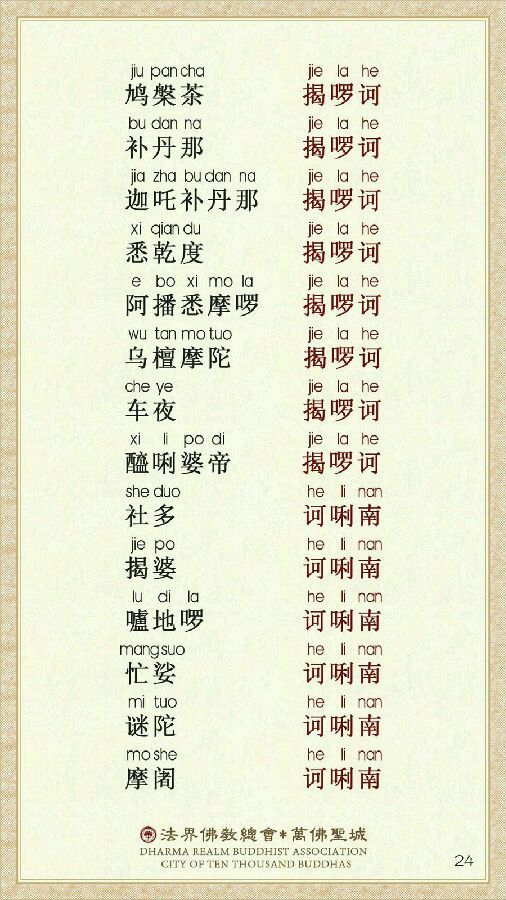 jiu pan cha jie la he
鸠槃茶 揭啰诃
bu dan na jie la he
补丹那 揭啰诃
jia zha bu dan na jie la he
迦吒补丹那 揭啰诃
xi qian du jie la he
悉乾度 揭啰诃
e bo xi mo la jie la he
阿播悉摩啰 揭啰诃
wu tan mo tuo jie la he
乌檀摩陀 揭啰诃
che ye jie la he
车夜 揭啰诃
xi li po di jie la he
醯唎婆帝 揭啰诃
she duo he li nan
社多 诃唎南
jie po he li nan
揭婆 诃唎南
lu di la he li nan
嚧地啰 诃唎南
mang suo he li nan
忙娑 诃唎南
mi tuo he li nan
谜陀 诃唎南
mo she he li nan
摩阇 诃唎南
法界佛教總會*萬佛聖城
DHARMA REALM BUDDHIST ASSOCIATION
CITY OF TEN THOUSAND BUDDHAS
24